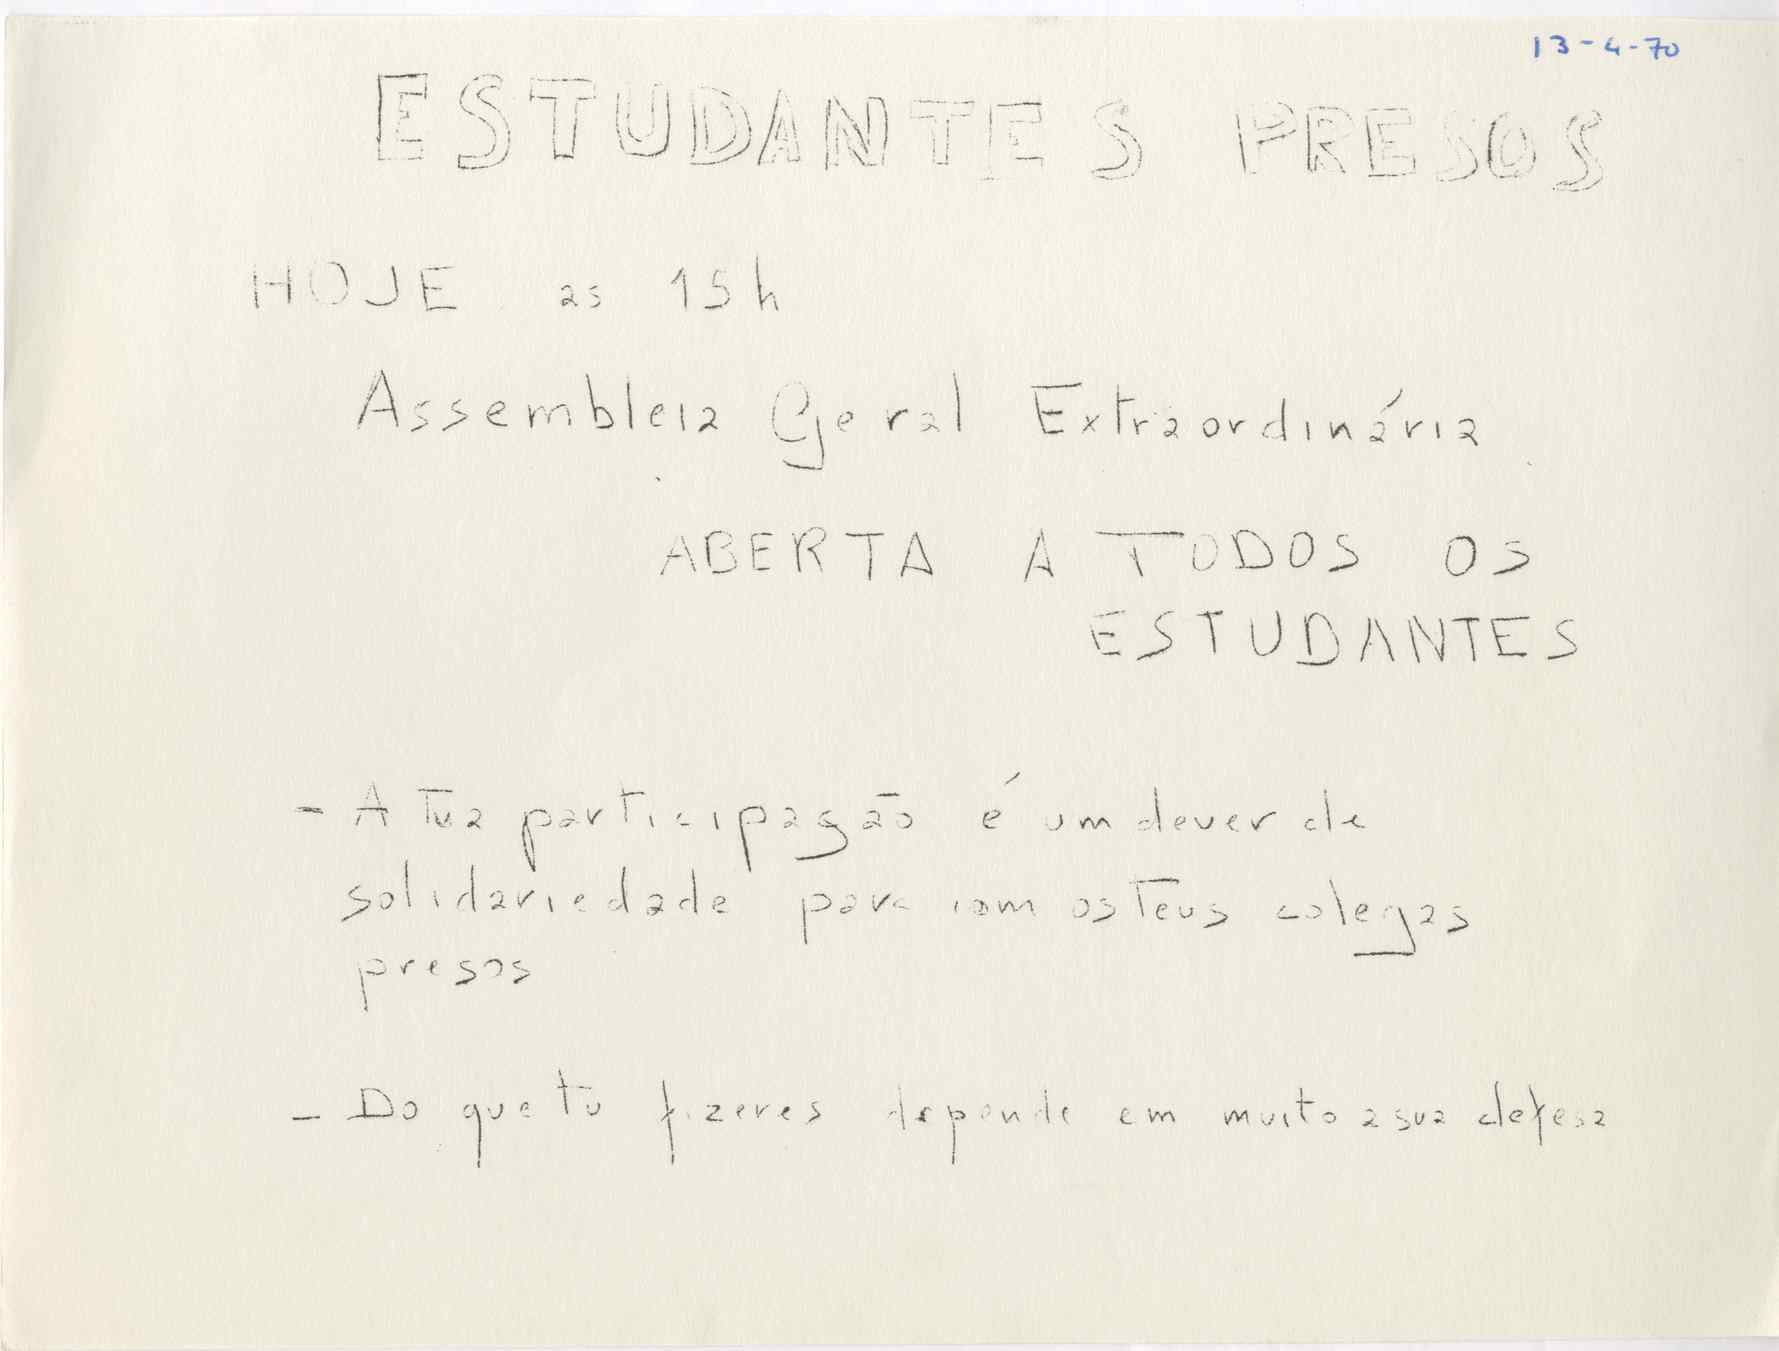 13-4-70
ESTUDANTES PRESOS
HOJE as 15h
Assembleia Geral Extraordinária
ABERTA A TODOS OS
ESTUDANTES
- A tua participação é um dever de
solidariedade para com os teus colegas
presos
- Do que tu fizeres depende em muito a sua defesa